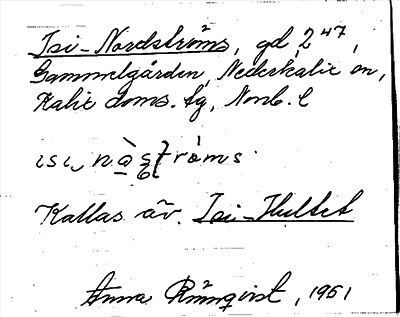 Isi-Nordströms, gd, 2⁴⁷,
Gammelgården, Nederkalix on,
Kalix doms. tg, Norrb. l
Kallas äv. Isi-Hultet
Anna Rönnqvist, 1951